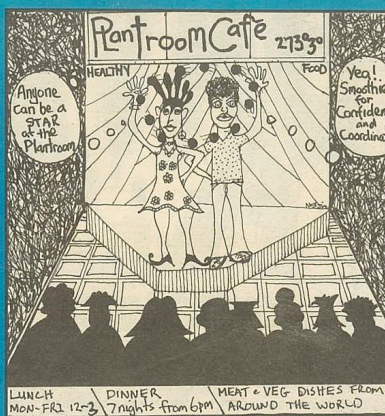 Plantroom Café 273030
HEALTHY FOOD
Anyone
can be a
STAR
at the
Plantroom
Yea!
Smoothies
for
Confidence
and
LUNCH
MON-FRI 12-3
DINNER
7 nights from 6pm
MEAT & VEG DISHES FROM
AROUND THE WORLD